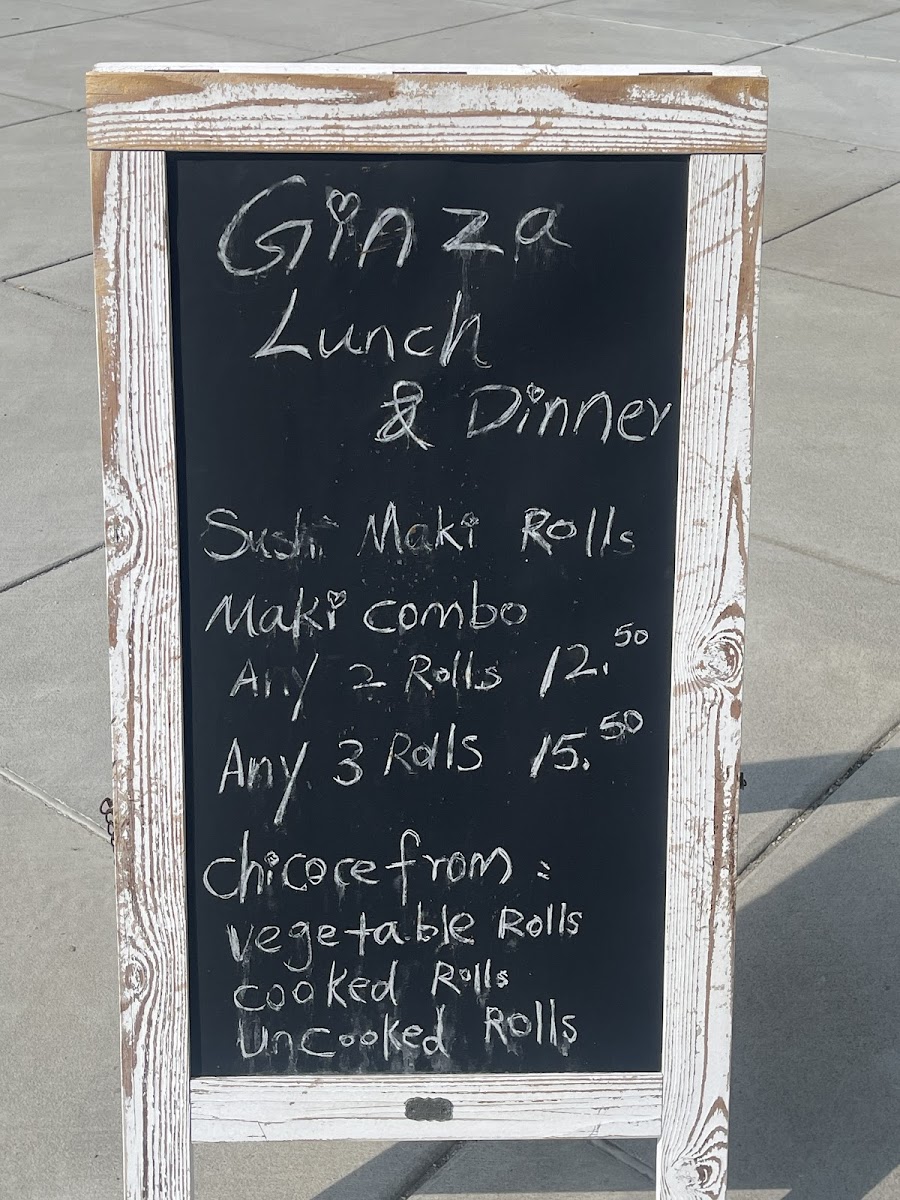 Ginza
Lunch
& Dinner
Sushi Maki Rolls
Maki combo
Any 2 Rolls 12.50
Any 3 Rolls 15.50
chicoce from :
vegetable Rolls
cooked Rolls
uncooked Rolls